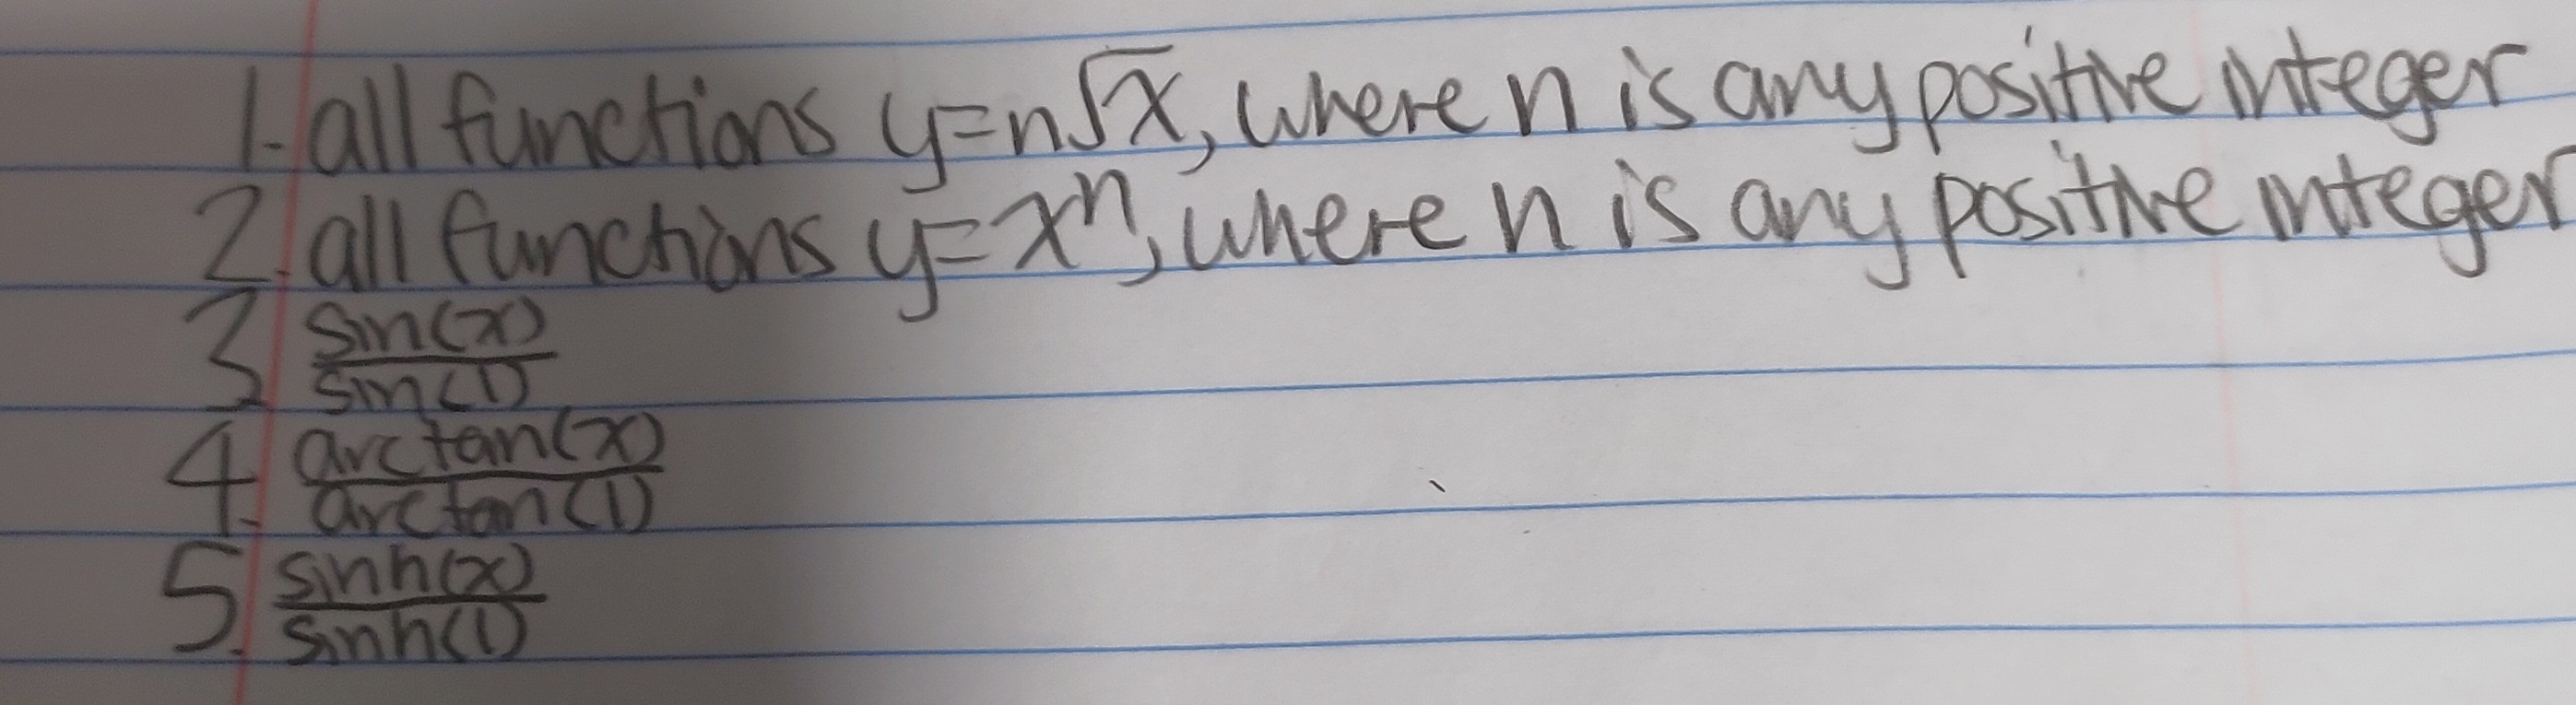 1. all functions y=n√x, where n is any positive integer
2. all functions y=xⁿ, where n is any positive integer
3. sin(x)/sin(1)
4. arctan(x)/arctan(1)
5. sinh(x)/sinh(1)